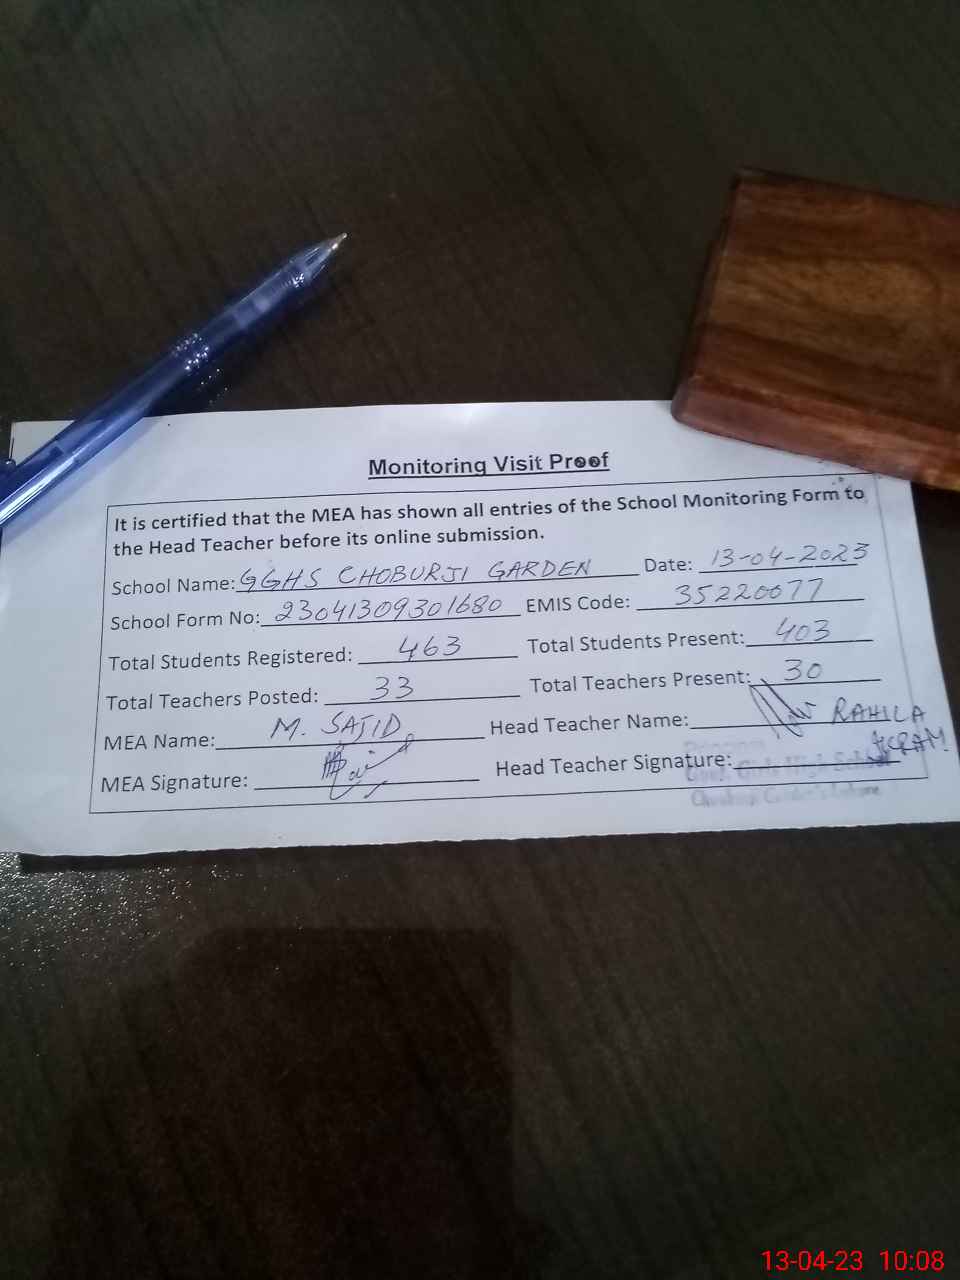 Monitoring Visit Proof
It is certified that the MEA has shown all entries of the School Monitoring Form to
the Head Teacher before its online submission.
School Name: GGHS CHOBURJI GARDEN Date: 13-04-2023
School Form No: 23041309301680 EMIS Code: 35220077
Total Students Registered: 463 Total Students Present: 403
Total Teachers Posted: 33 Total Teachers Present: 30
MEA Name: M. SAJID Head Teacher Name: RAHILA
AKRAM
MEA Signature: Head Teacher Signature:
Govt. Girls High School
13-04-23 10:08